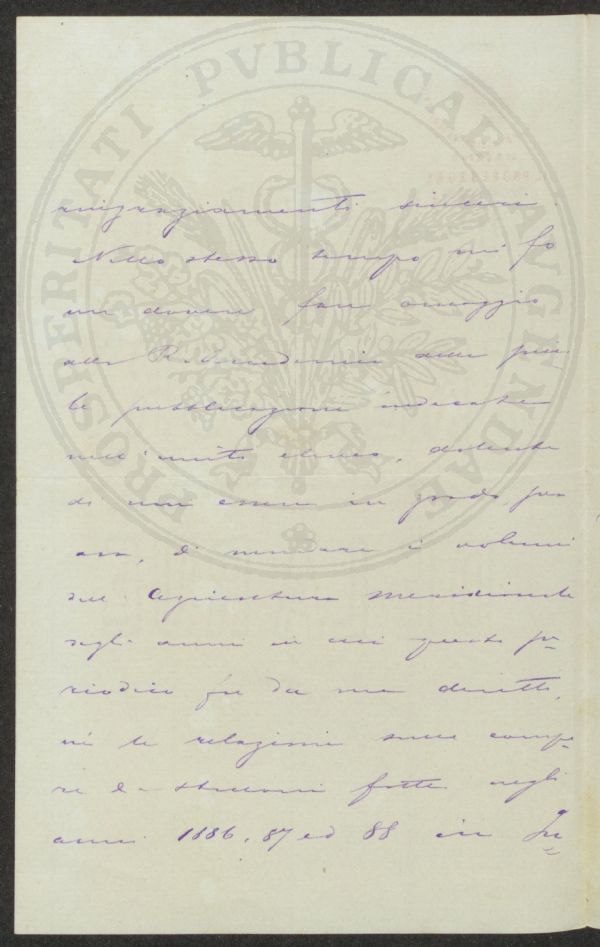 PROSPERITATI PVBLICAE AVGENDAE
ringraziamenti sinceri.
Nello stesso tempo mi fo
un dovere fare omaggio
alla R. Accademia delle
le pubblicazioni indicate
nell'unito elenco, dolente
di non essere in grado, per
ora, di mandare i volumi
dell'Agricoltura Meridionale
degli anni in cui questo pe=
riodico fu da me diretto,
nè le relazioni sulle
fatte negli
anni 1886, 87 ed 88 in